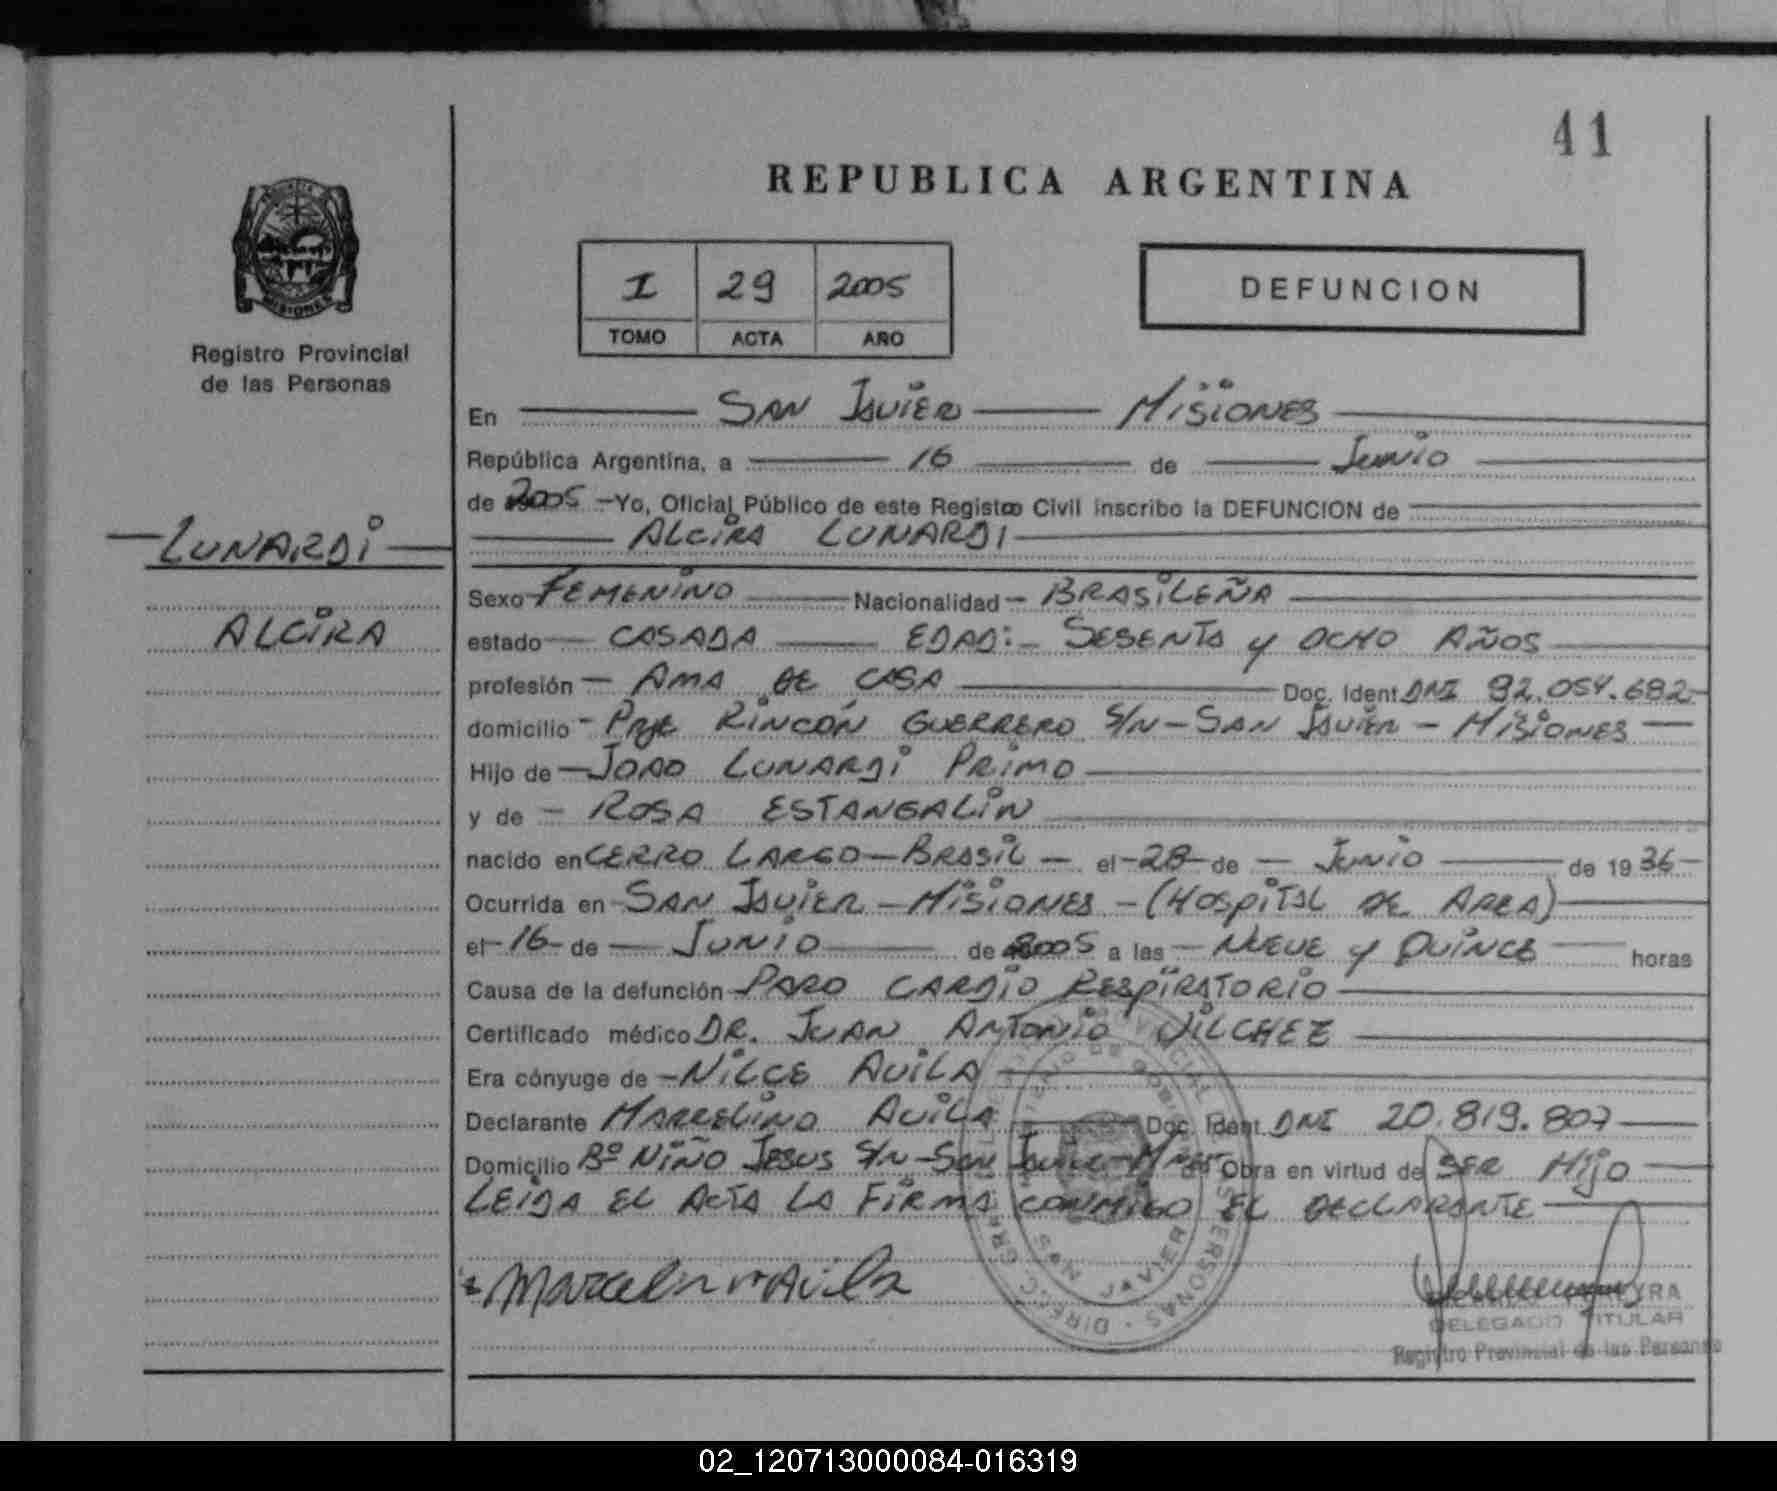 41
REPUBLICA ARGENTINA
I 29 2005
TOMO ACTA AÑO
DEFUNCION
MISIONES
Registro Provincial
de las Personas
LUNARDI
ALCIRA
En SAN JAVIER MISIONES
República Argentina, a 16 de JUNIO
de 2005 - Yo, Oficial Público de este Registro Civil inscribo la DEFUNCION de
ALCIRA LUNARDI
Sexo FEMENINO Nacionalidad BRASILEÑA
estado CASADA EDAD: SESENTA y OCHO AÑOS
profesión AMA DE CASA Doc. Ident DNI 92.054.692
domicilio RINCÓN GUERRERO S/N - SAN JAVIER - MISIONES
Hijo de JOAO LUNARDI PRIMO
y de ROSA ESTANGALIN
nacido en CERRO LARGO - BRASIL - el 28 de JUNIO de 1936
Ocurrida en SAN JAVIER - MISIONES - (HOSPITAL DE AREA)
el 16 de JUNIO de 2005 a las NUEVE y QUINCE horas
Causa de la defunción PARO CARDIO RESPIRATORIO
Certificado médico DR. JUAN ANTONIO VILCHEZ
Era cónyuge de NILCE AVILA
Declarante MARCELINO AVILA Doc. Ident DNI 20.819.807
Domicilio Bº NIÑO JESUS S/N - SAN JAVIER - Obra en virtud de SER HIJO
LEIDA EL ACTA LA FIRMA CONMIGO EL DECLARANTE
Marcelino Avila
DELEGADO TITULAR
Registro Provincial de las Personas
02_120713000084-016319